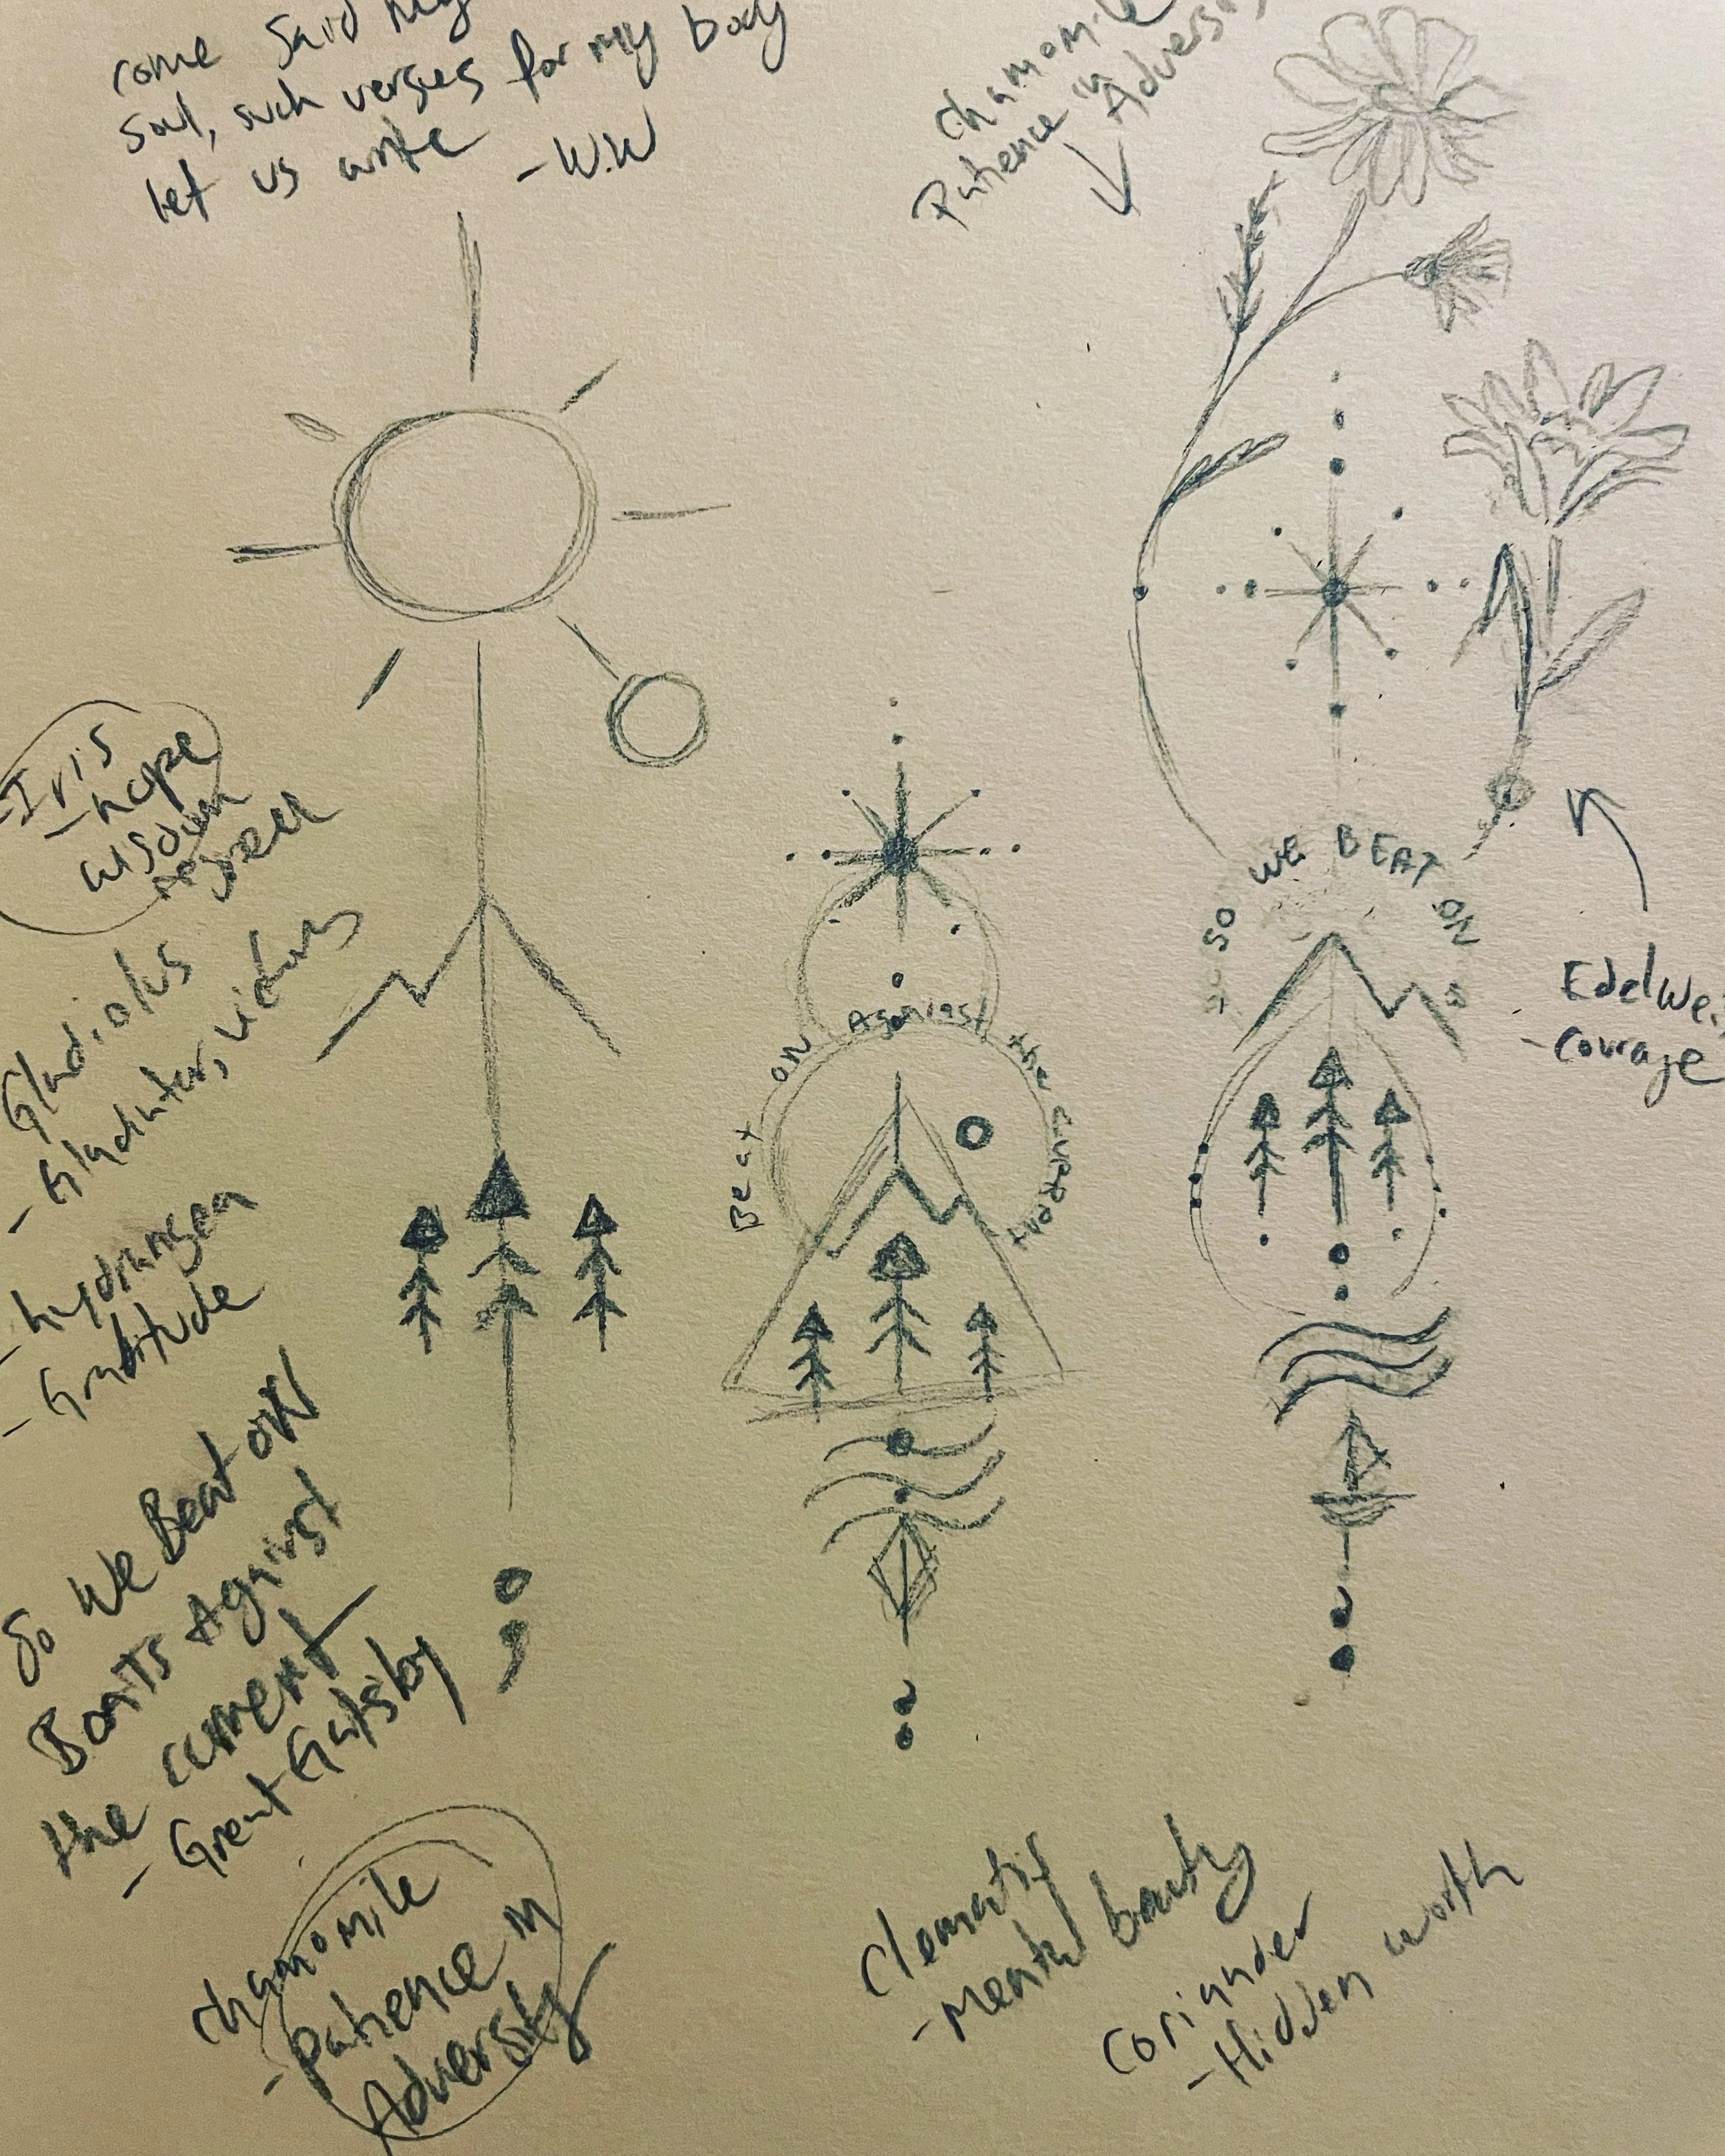 come said my
soul, such verses for my body
let us write
-W.W
chamomile
Patience in
Adversi
-Iris
-hope
wisdom
Gladiolus
-Gladiator, victory
-hydrangea
-Gratitude
So We Beat ON
Boats Against
the current
-Great Gatsby
chamomile
-Patience in
Adversity
Beat on Against the current
SO WE BEAT ON
Edelwei
-courage
Clematis
-Mental beauty
Coriander
-Hidden worth